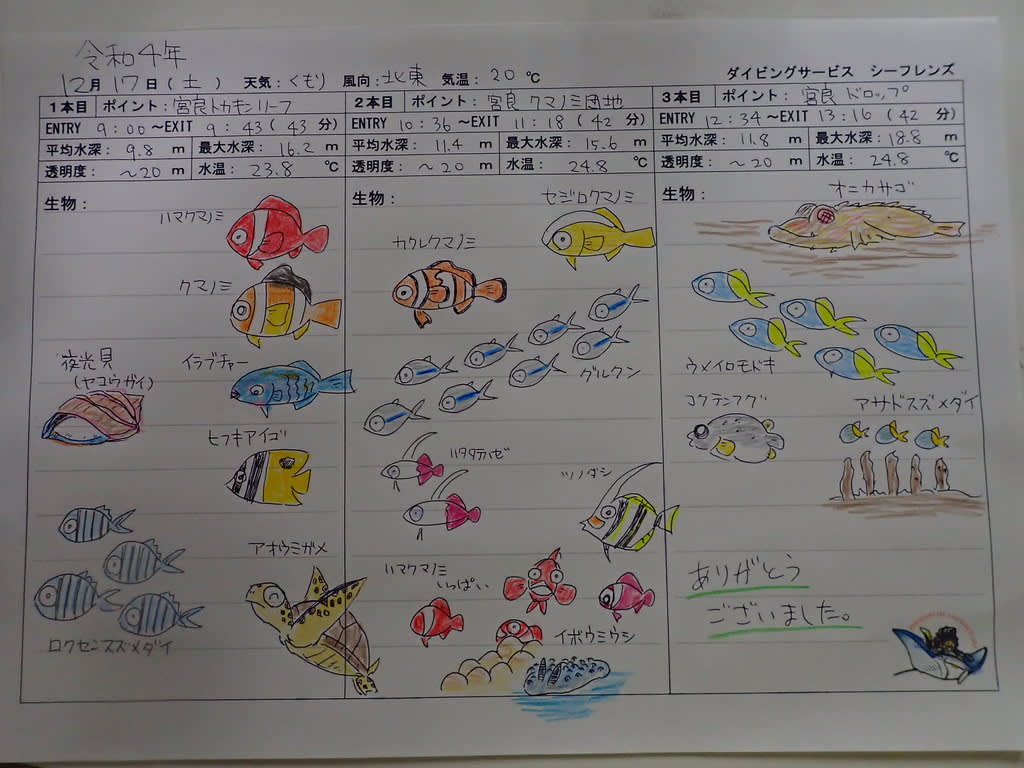 令和4年
12月17日(土) 天気:くもり 風向:北東 気温:20℃
ダイビングサービス シーフレンズ
1本目 ポイント:宮良トカキンリーフ
ENTRY 9:00～EXIT 9:43(43分)
平均水深:9.8m 最大水深:16.2m
透明度:～20m 水温:23.8℃
生物:
ハマクマノミ
クマノミ
夜光貝
(ヤコウガイ)
イラブチャー
ヒフキアイゴ
アオウミガメ
ロクセンスズメダイ
2本目 ポイント:宮良クマノミ団地
ENTRY 10:36～EXIT 11:18(42分)
平均水深:11.4m 最大水深:15.6m
透明度:～20m 水温:24.8℃
生物:
セジロクマノミ
カクレクマノミ
グルクン
ハタタテハゼ
ツノダシ
ハマクマノミ
いっぱい
イボウミウシ
3本目 ポイント:宮良ドロップ
ENTRY 12:34～EXIT 13:16(42分)
平均水深:11.8m 最大水深:18.8m
透明度:～20m 水温:24.8℃
生物:
オニカサゴ
ウメイロモドキ
コクテンフグ
アサドスズメダイ
ありがとう
ございました。